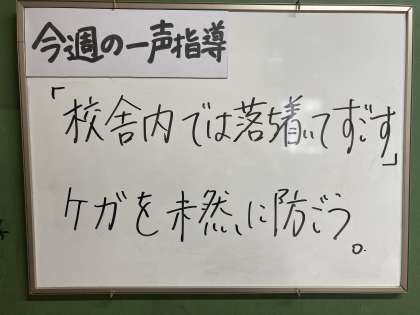 今週の一声指導
「校舎内では落ち着いてすごす」
ケガを未然に防ごう。